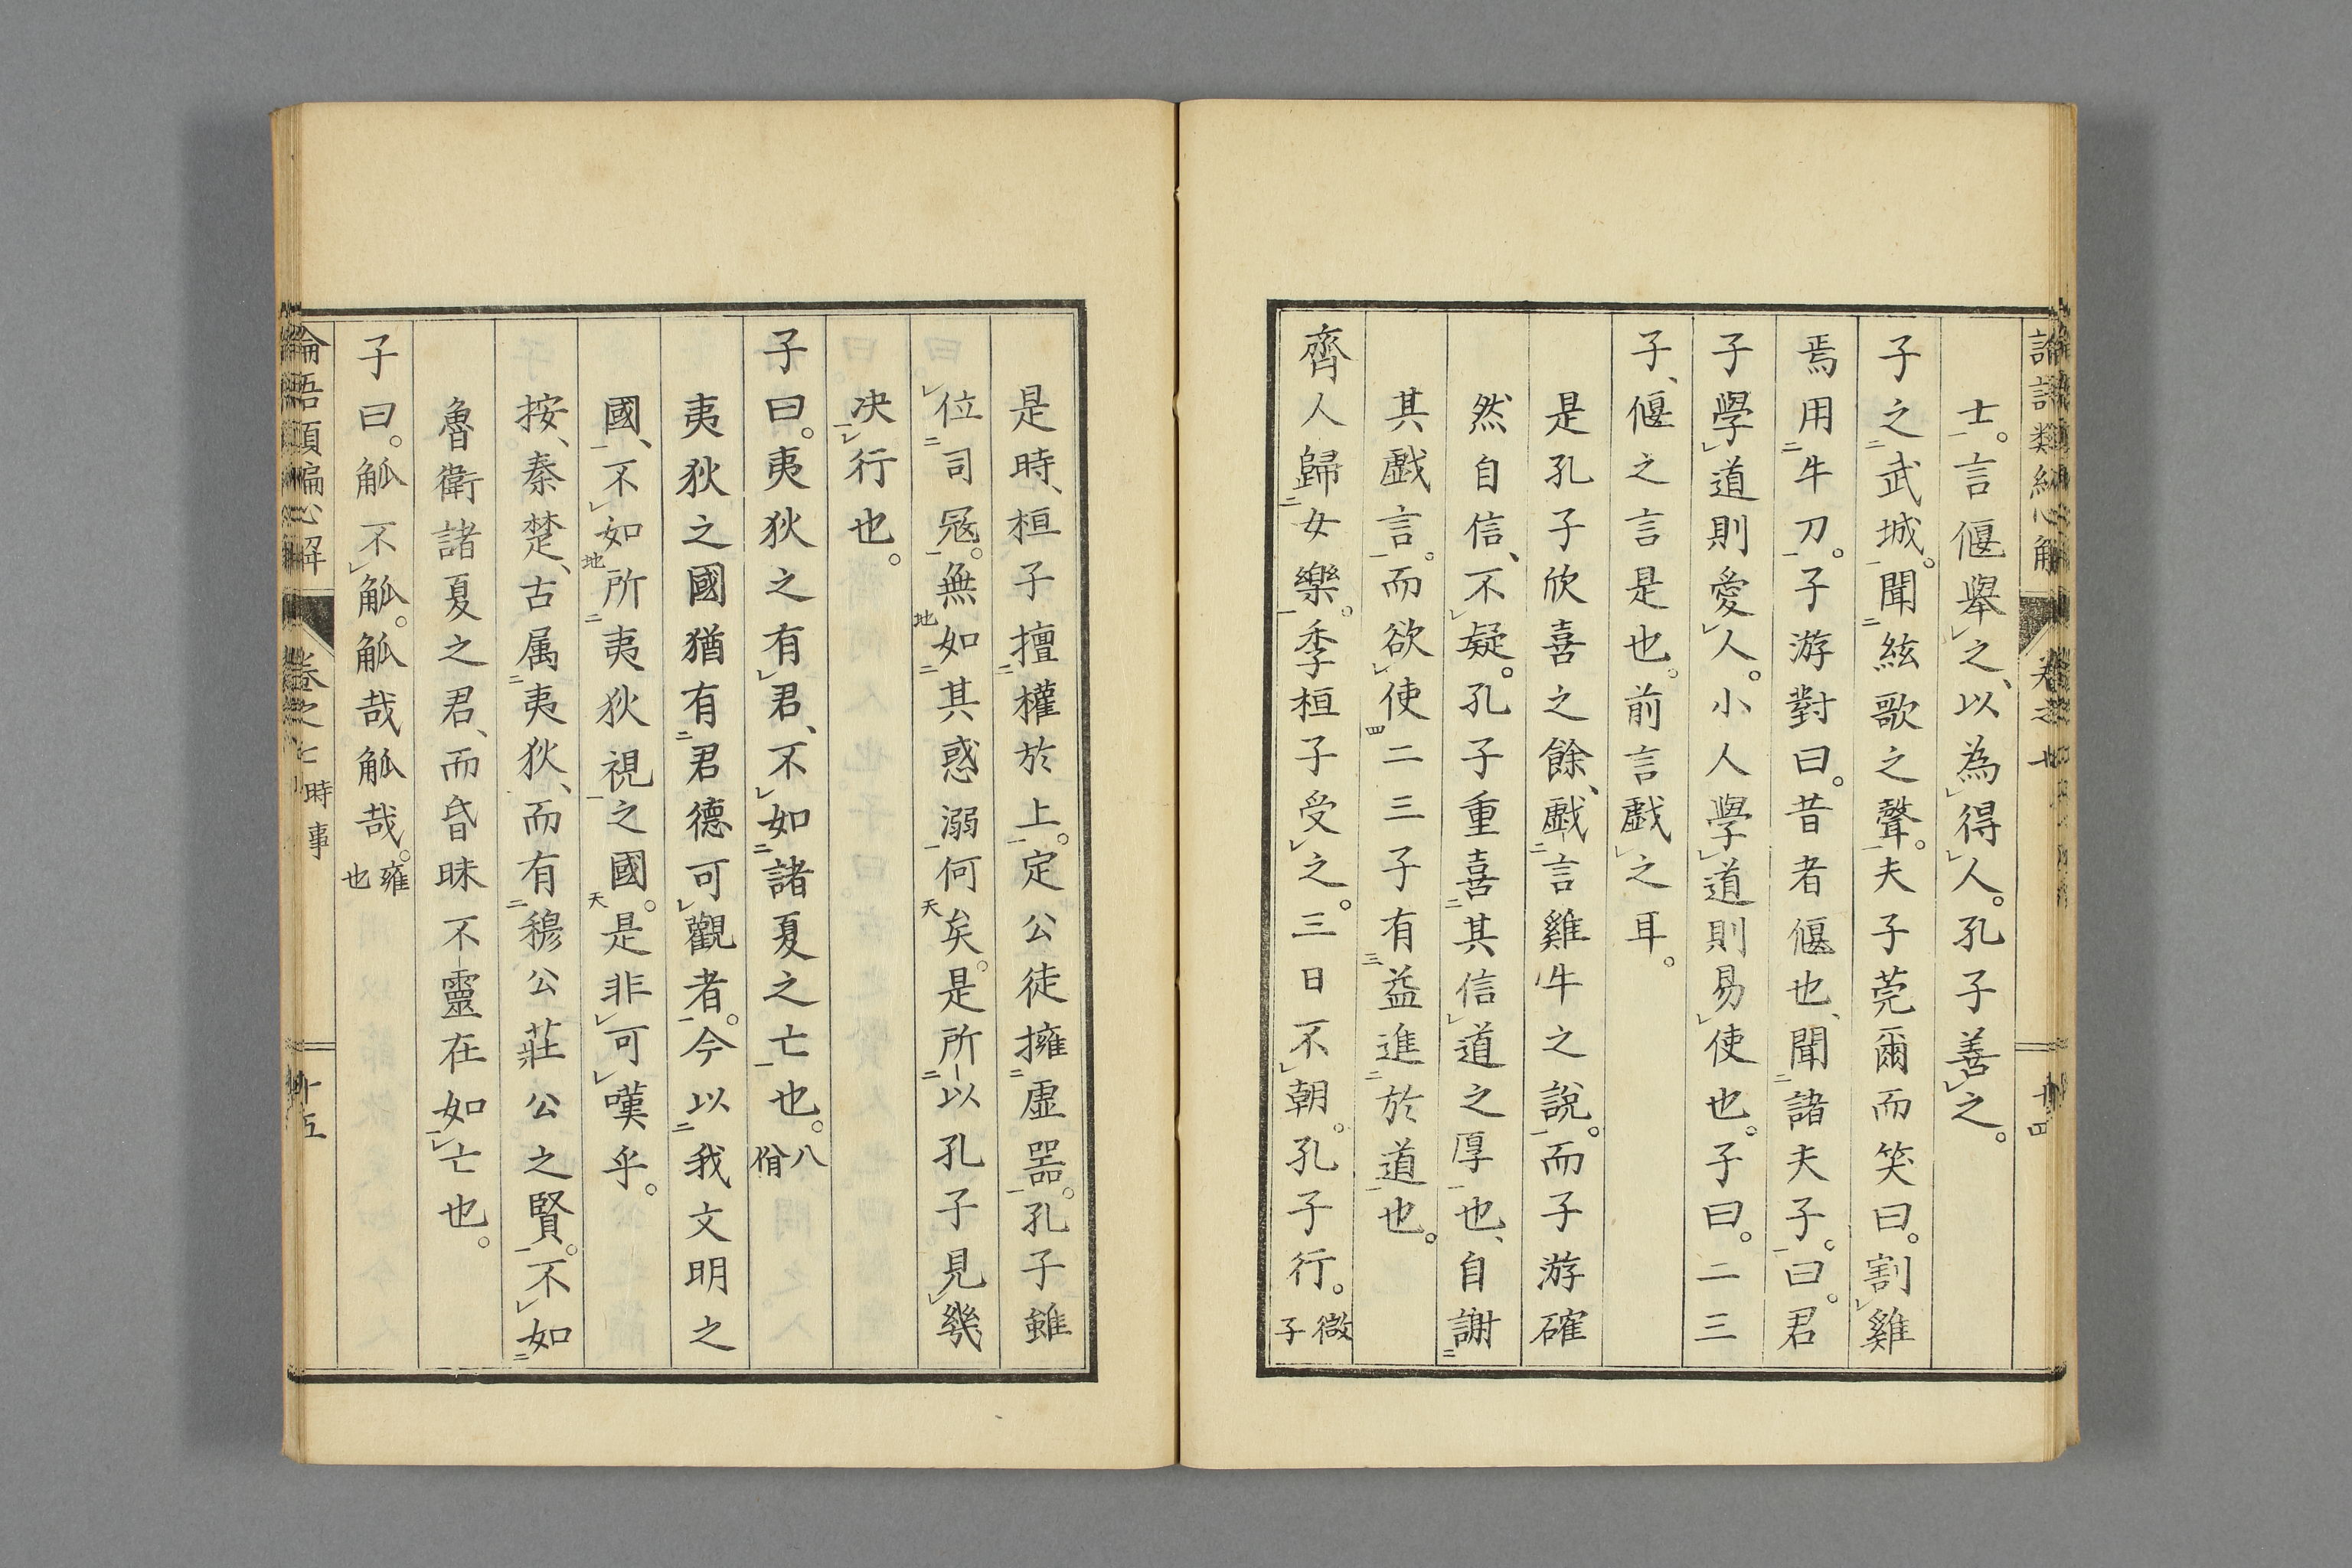 士。言偃舉之、以為得人。孔子善之。
子之武城。聞絃歌之聲。夫子莞爾而笑曰。割雞
焉用牛刀。子游對曰。昔者偃也、聞諸夫子。曰。君
子學道則愛人。小人學道則易使也。子曰。二三
子、偃之言是也。前言戲之耳。
是孔子欣喜之餘、戲言雞牛之說。而子游確
然自信、不疑。孔子重喜其信道之厚也、自謝
其戲言。而欲使二三子有益進於道也。
齊人歸女樂。季桓子受之。三日不朝。孔子行。微子
是時、桓子擅權於上。定公徒擁虛器。孔子雖
位司冦。無如其惑溺何矣。是所以孔子見幾
决行也。
子曰。夷狄之有君、不如諸夏之亡也。八佾
夷狄之國猶有君德可觀者。今以我文明之
國、不如所夷狄視之國。是非可嘆乎。
按、秦楚、古属夷狄、而有穆公莊公之賢。不如
魯衛諸夏之君、而昏昧不靈在如亡也。
子曰。觚不觚。觚哉觚哉。雍也
論語類編心解 卷之七 時事 十五